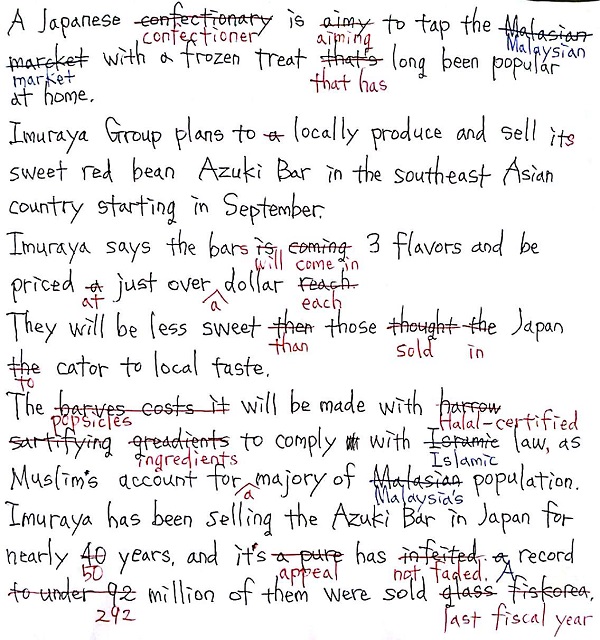 A Japanese confectionary is aimy to tap the Malasian
confectioner aiming Malaysian
marcket with a frozen treat that's long been popular
market that has
at home.
Imuraya Group plans to a locally produce and sell its
sweet red bean Azuki Bar in the southeast Asian
country starting in September.
Imuraya says the bars is coming 3 flavors and be
will come in
priced a just over dollar reach.
at a each
They will be less sweet then those thought the Japan
than sold in
the cator to local taste.
to
The barves costs it will be made with harrow
popsicles Halal-certified
sartifying greadients to comply with Isramic law, as
ingredients Islamic
Muslim's account for majory of Malasian population.
a Malaysia's
Imuraya has been selling the Azuki Bar in Japan for
nearly 40 years, and it's a pure has infeited. a record
50 appeal not faded. A
to under 92 million of them were sold glass fiskorea.
292 last fiscal year